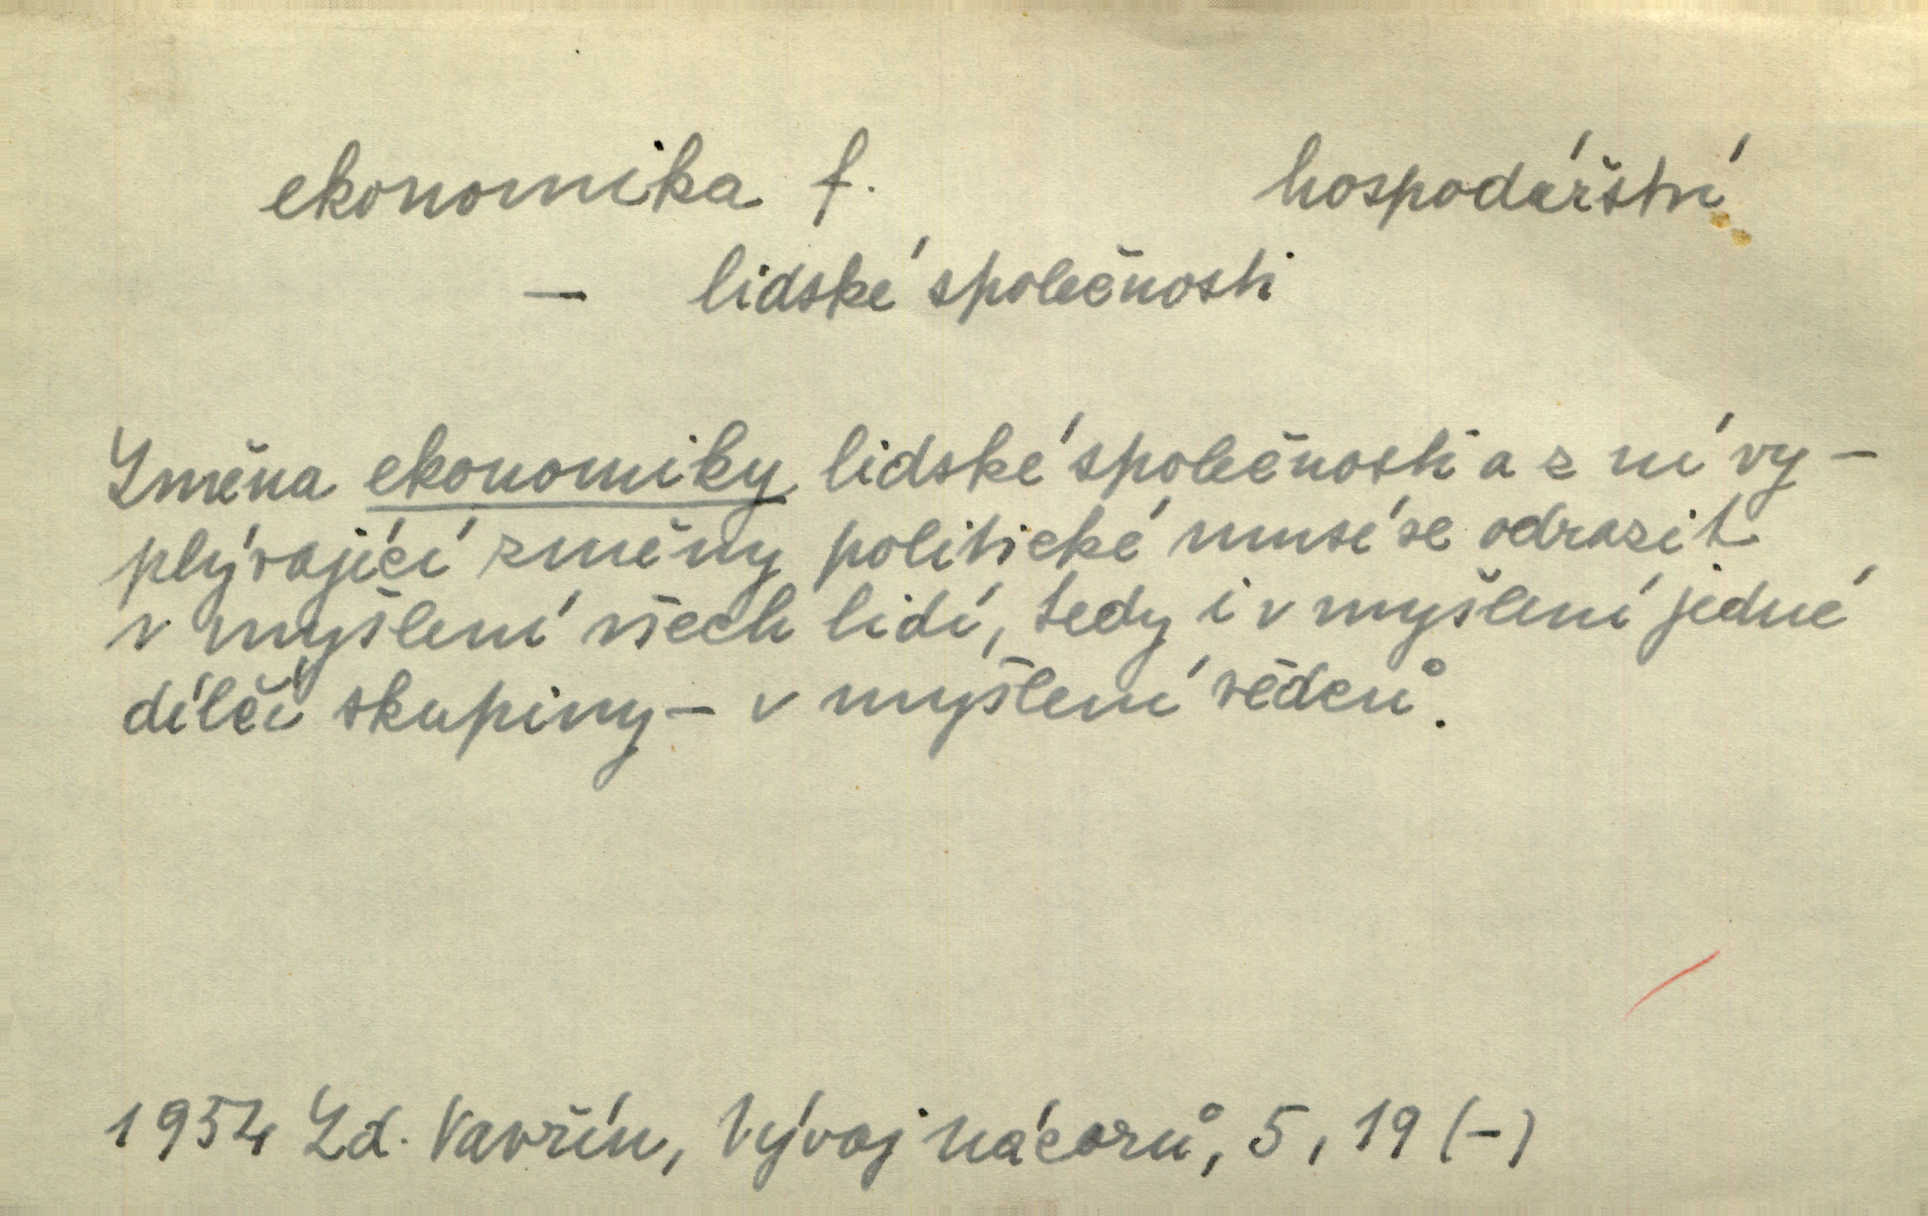 ekonomika f. hospodářství
— lidské společnosti
Změna ekonomiky lidské společnosti a z ní vy-
plývající změny politické musí se odrazit
v myšlení všech lidí, tedy i v myšlení jedné
dílčí skupiny – v myšlení vědců.
1954 Zd. Vavřín, Vývoj názorů, 5, 19 (-)